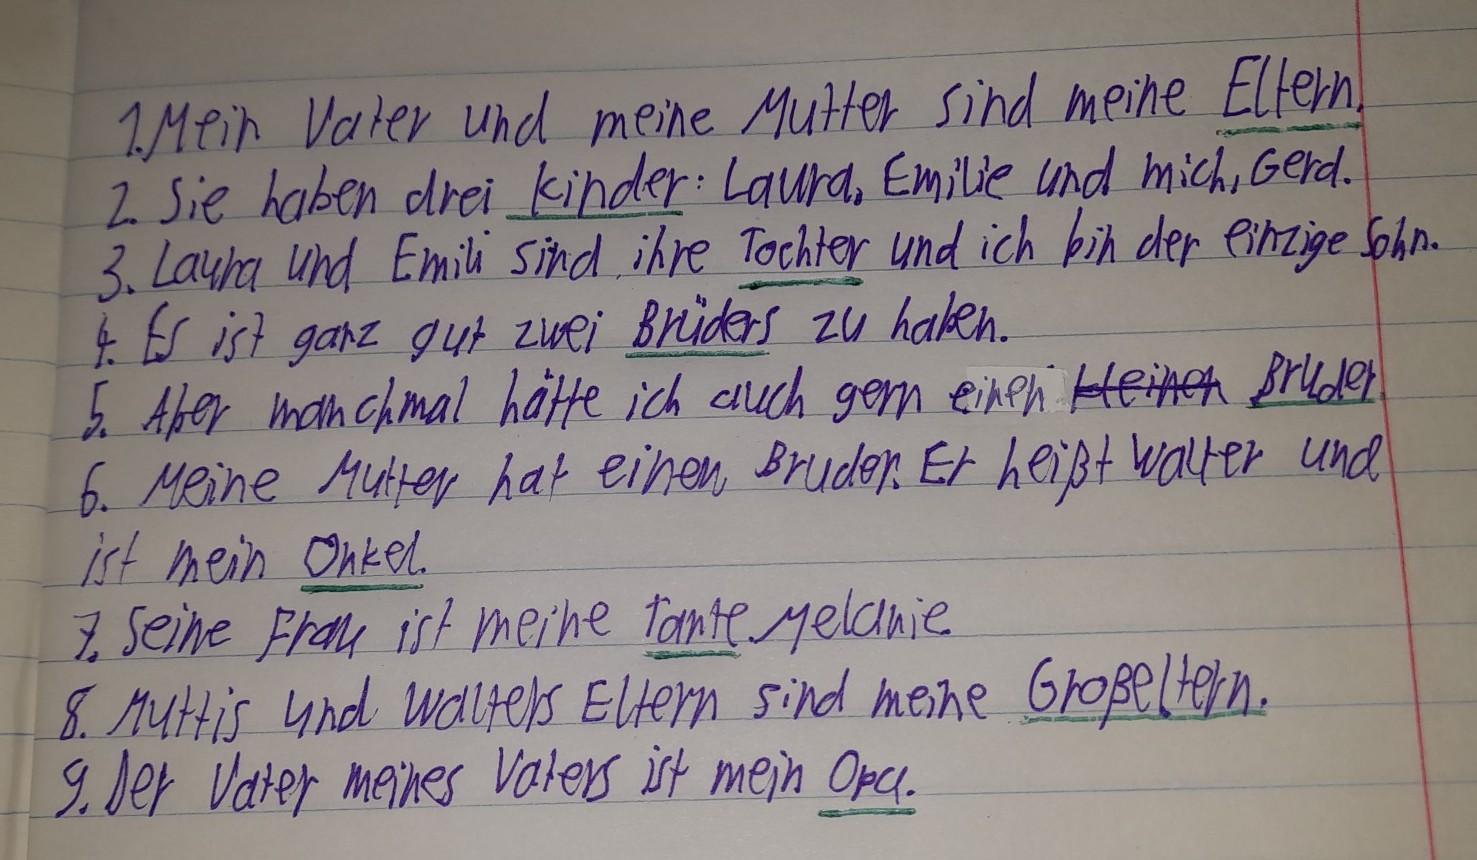 1. Mein Vater und meine Mutter sind meine Eltern.
2. Sie haben drei Kinder: Laura, Emilie und mich, Gerd.
3. Laura und Emili sind ihre Tochter und ich bin der einzige Sohn.
4. Es ist ganz gut zwei Brüders zu haben.
5. Aber manchmal hätte ich auch gern einen kleinen Bruder
6. Meine Mutter hat einen Bruder. Er heißt Walter und
ist mein Onkel.
7. Seine Frau ist meine Tante Melanie
8. Muttis und Walters Eltern sind meine Großeltern.
9. Der Vater meines Vaters ist mein Opa.